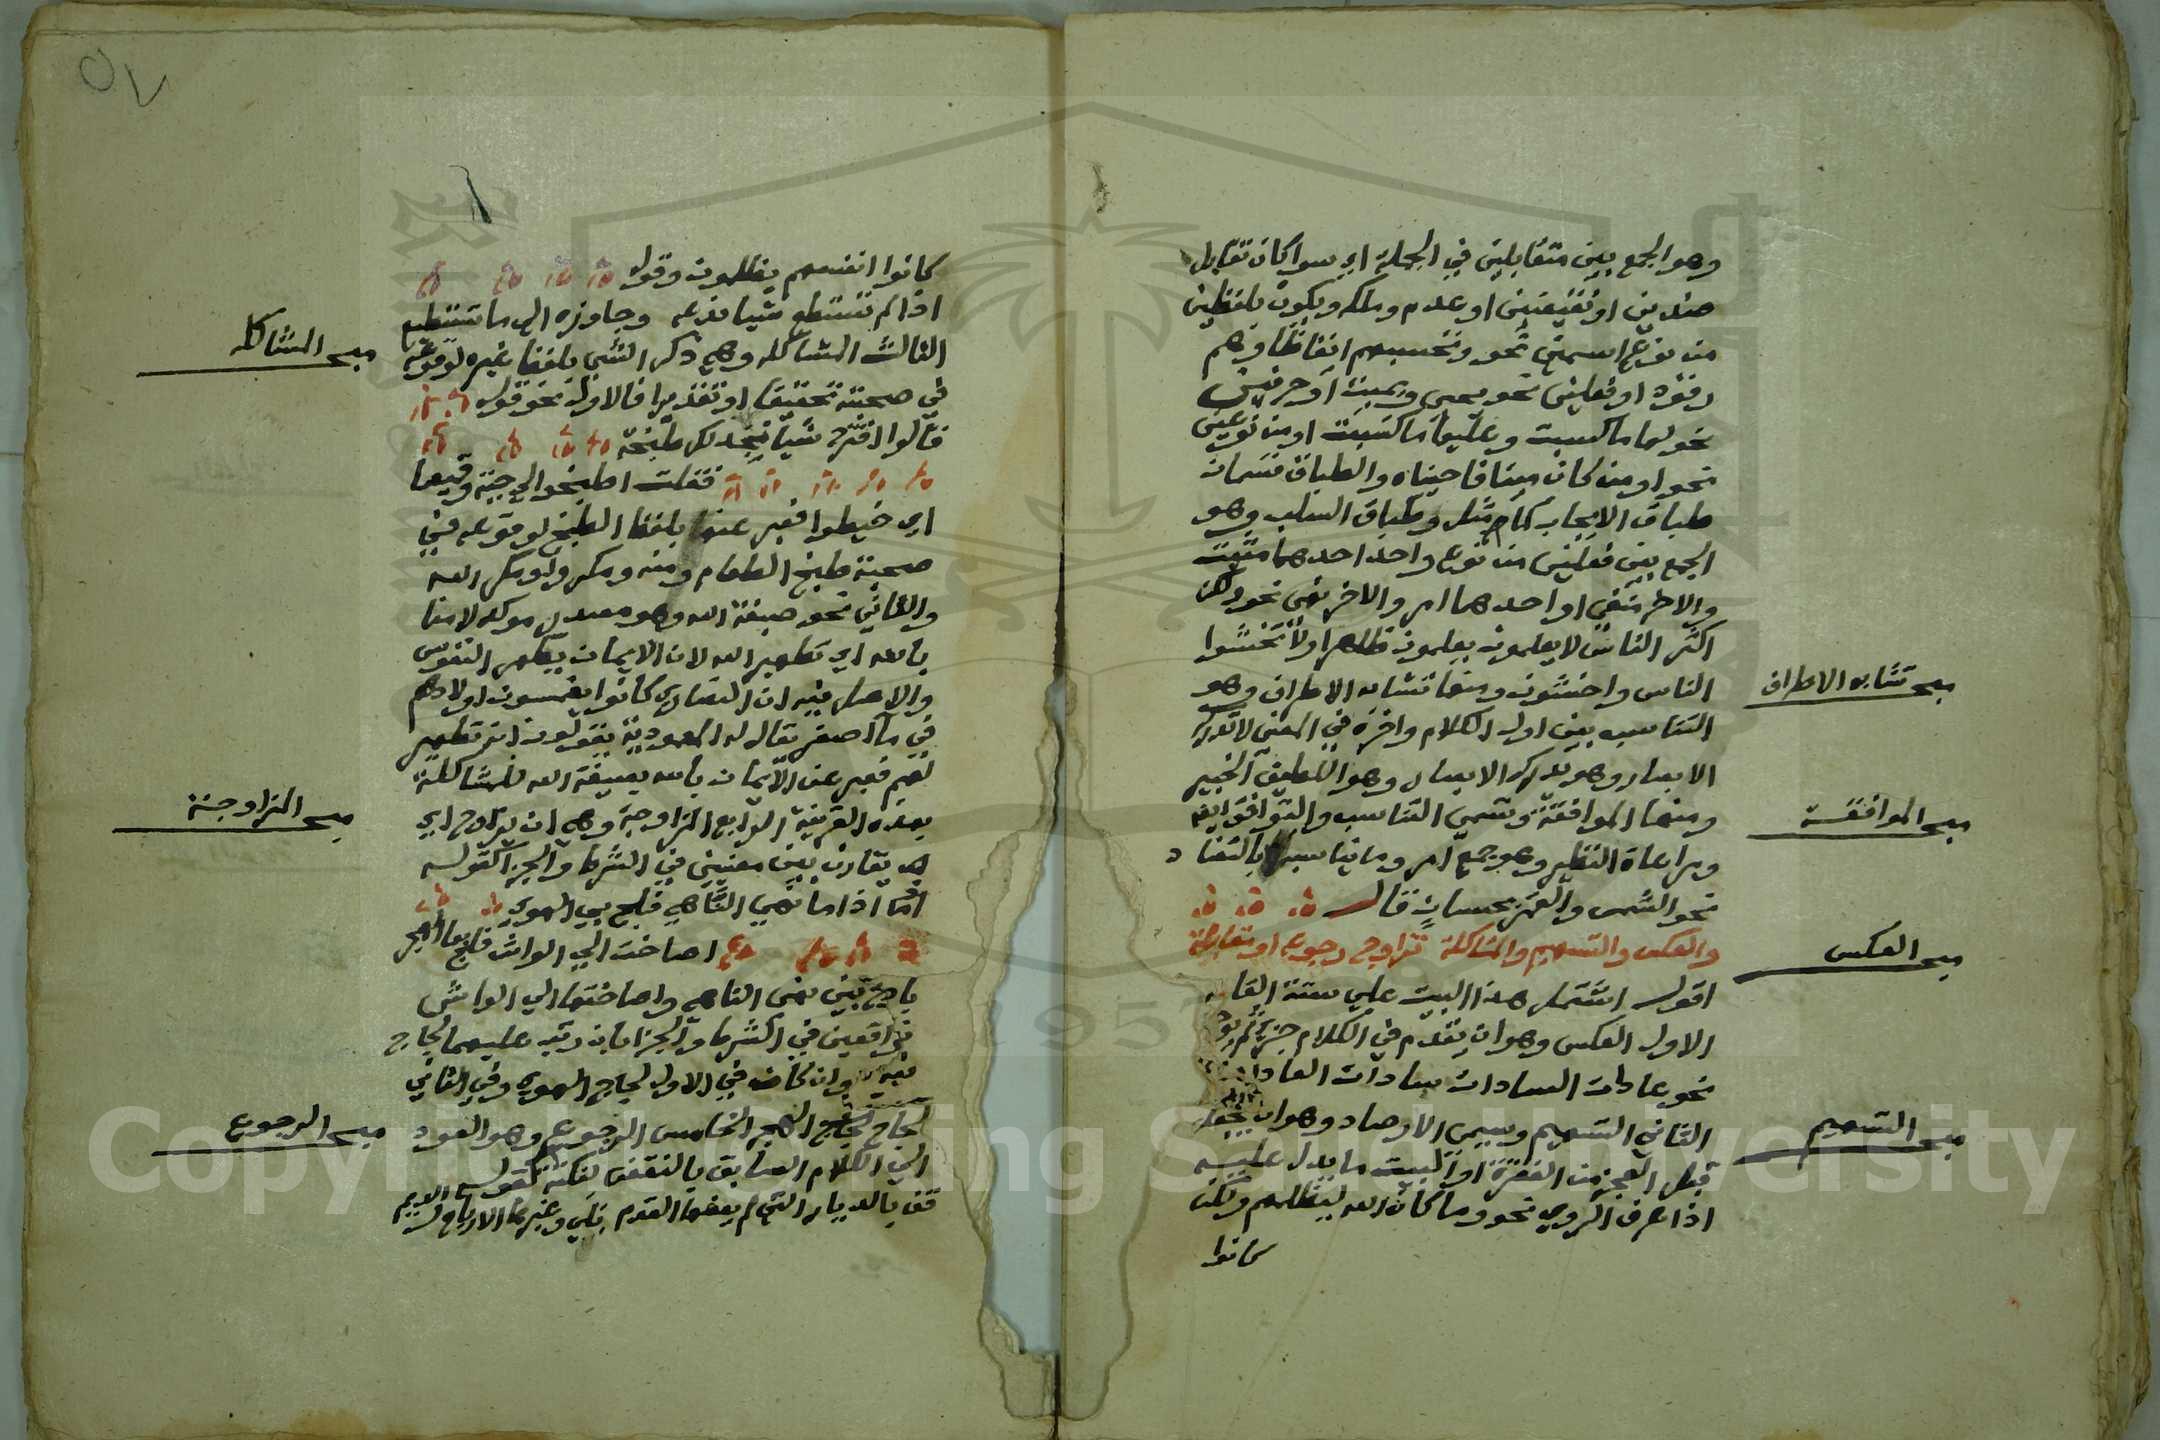 وهو الجمع بين متقابلين في الجملة اي سوا كان تقابل
ضدين او نقيضين او عدم وملكه ويكون بلفظين
من نوع اسمين نحو وتحسبهم ايقاظا وهم
رقود او فعلين نحو يحيى ويميت او حرفين
نحو لها ما كسبت وعليها ما اكتسبت او من نوعين
نحو او من كان ميتا فاحييناه والطباق قسمان
طباق الايجاب كما مثل وطباق السلب وهو
الجمع بين فعلين من نوع واحد احدهما مثبت
والاخر منفي او احدهما امر والاخر نهي نحو ولكن
اكثر الناس لا يعلمون يعلمون ظاهرا ولا تخشوا
الناس واخشون ومنها تشابه الاطراف وهو
التناسب بين اول الكلام واخره في المعنى لا تدركه
الابصار وهو يدرك الابصار وهو اللطيف الخبير
ومنها الموافقة وتسمى التناسب والتوافق ايضا
ومراعاة النظير وهو جمع امر وما يناسبه لا بالتضاد
نحو الشمس والقمر بحسبان قال
والعكس والتسهيم والمشاكلة تزاوج رجوع او مقابلة
اقول اشتمل هذا البيت علي ستة القاب
الاول العكس وهو ان يقدم في الكلام جزء ثم يؤخر
نحو عادات السادات سادات العادات
الثاني التسهيم ويسمى الارصاد وهو ان يجعل
قبل العجز من الفقرة او البيت ما يدل عليه
اذا عرف الروي نحو وما كان الله ليظلمهم ولكن
كانوا
مبحـ تشابه الاطراف
مبحـ الموافقة
مبحـ العكس
مبحـ التسهيم
٥٧
كانوا انفسهم يظلمون وقوله
اذا لم تستطع شيا فدعه وجاوزه الى ما تستطيع
الثالث المشاكله وهي ذكر الشي بلفظ غيره لوقوعه
في صحبته تحقيقا او تقديرا فالاول نحو قوله
قالوا اقترح شيا نجد لك طبخه
فقلت اطبخوا لي جبة وقميصا
اي خيطوا فعبر عنه بلفظ الطبخ لوقوعه في
صحبة طبخ الطعام ومنه ومكروا ومكر الله
والثاني نحو صبغة الله وهو مصدر موكد لامنا
بالله اي تطهير الله لان الايمان يطهر النفوس
والاصل فيه ان النصارى كانوا يغمسون اولادهم
في ما اصفر يقال له المعمودية يقولون انه تطهير
لهم فعبر عن الايمان بالله بصبغة الله للمشاكلة
بهذه القرينة الرابع المزاوجة وهي ان يزاوج اي
يقارن بين معنيين في الشرط والجزا كقوله
اذا ما نهى الناهي فلج بي الهوى
اصاخت الي الواشي فلج بها الهجر
زاوج بين نهى الناهي واصاختها الي الواشي
الواقعين في الشرط والجزا بان رتب عليهما لجاج
شي وان كان في الاول لجاج الهوى وفي الثاني
لجاج الهجر الخامس الرجوع وهو العود
الي الكلام السابق بالنقض لنكتة كقوله
قف بالديار التي لم يعفها القدم بلى وغيرها الارواح والديم
مبحـ المشاكله
مبحـ المزاوجة
مبحـ الرجوع
Copyright © King Saud University